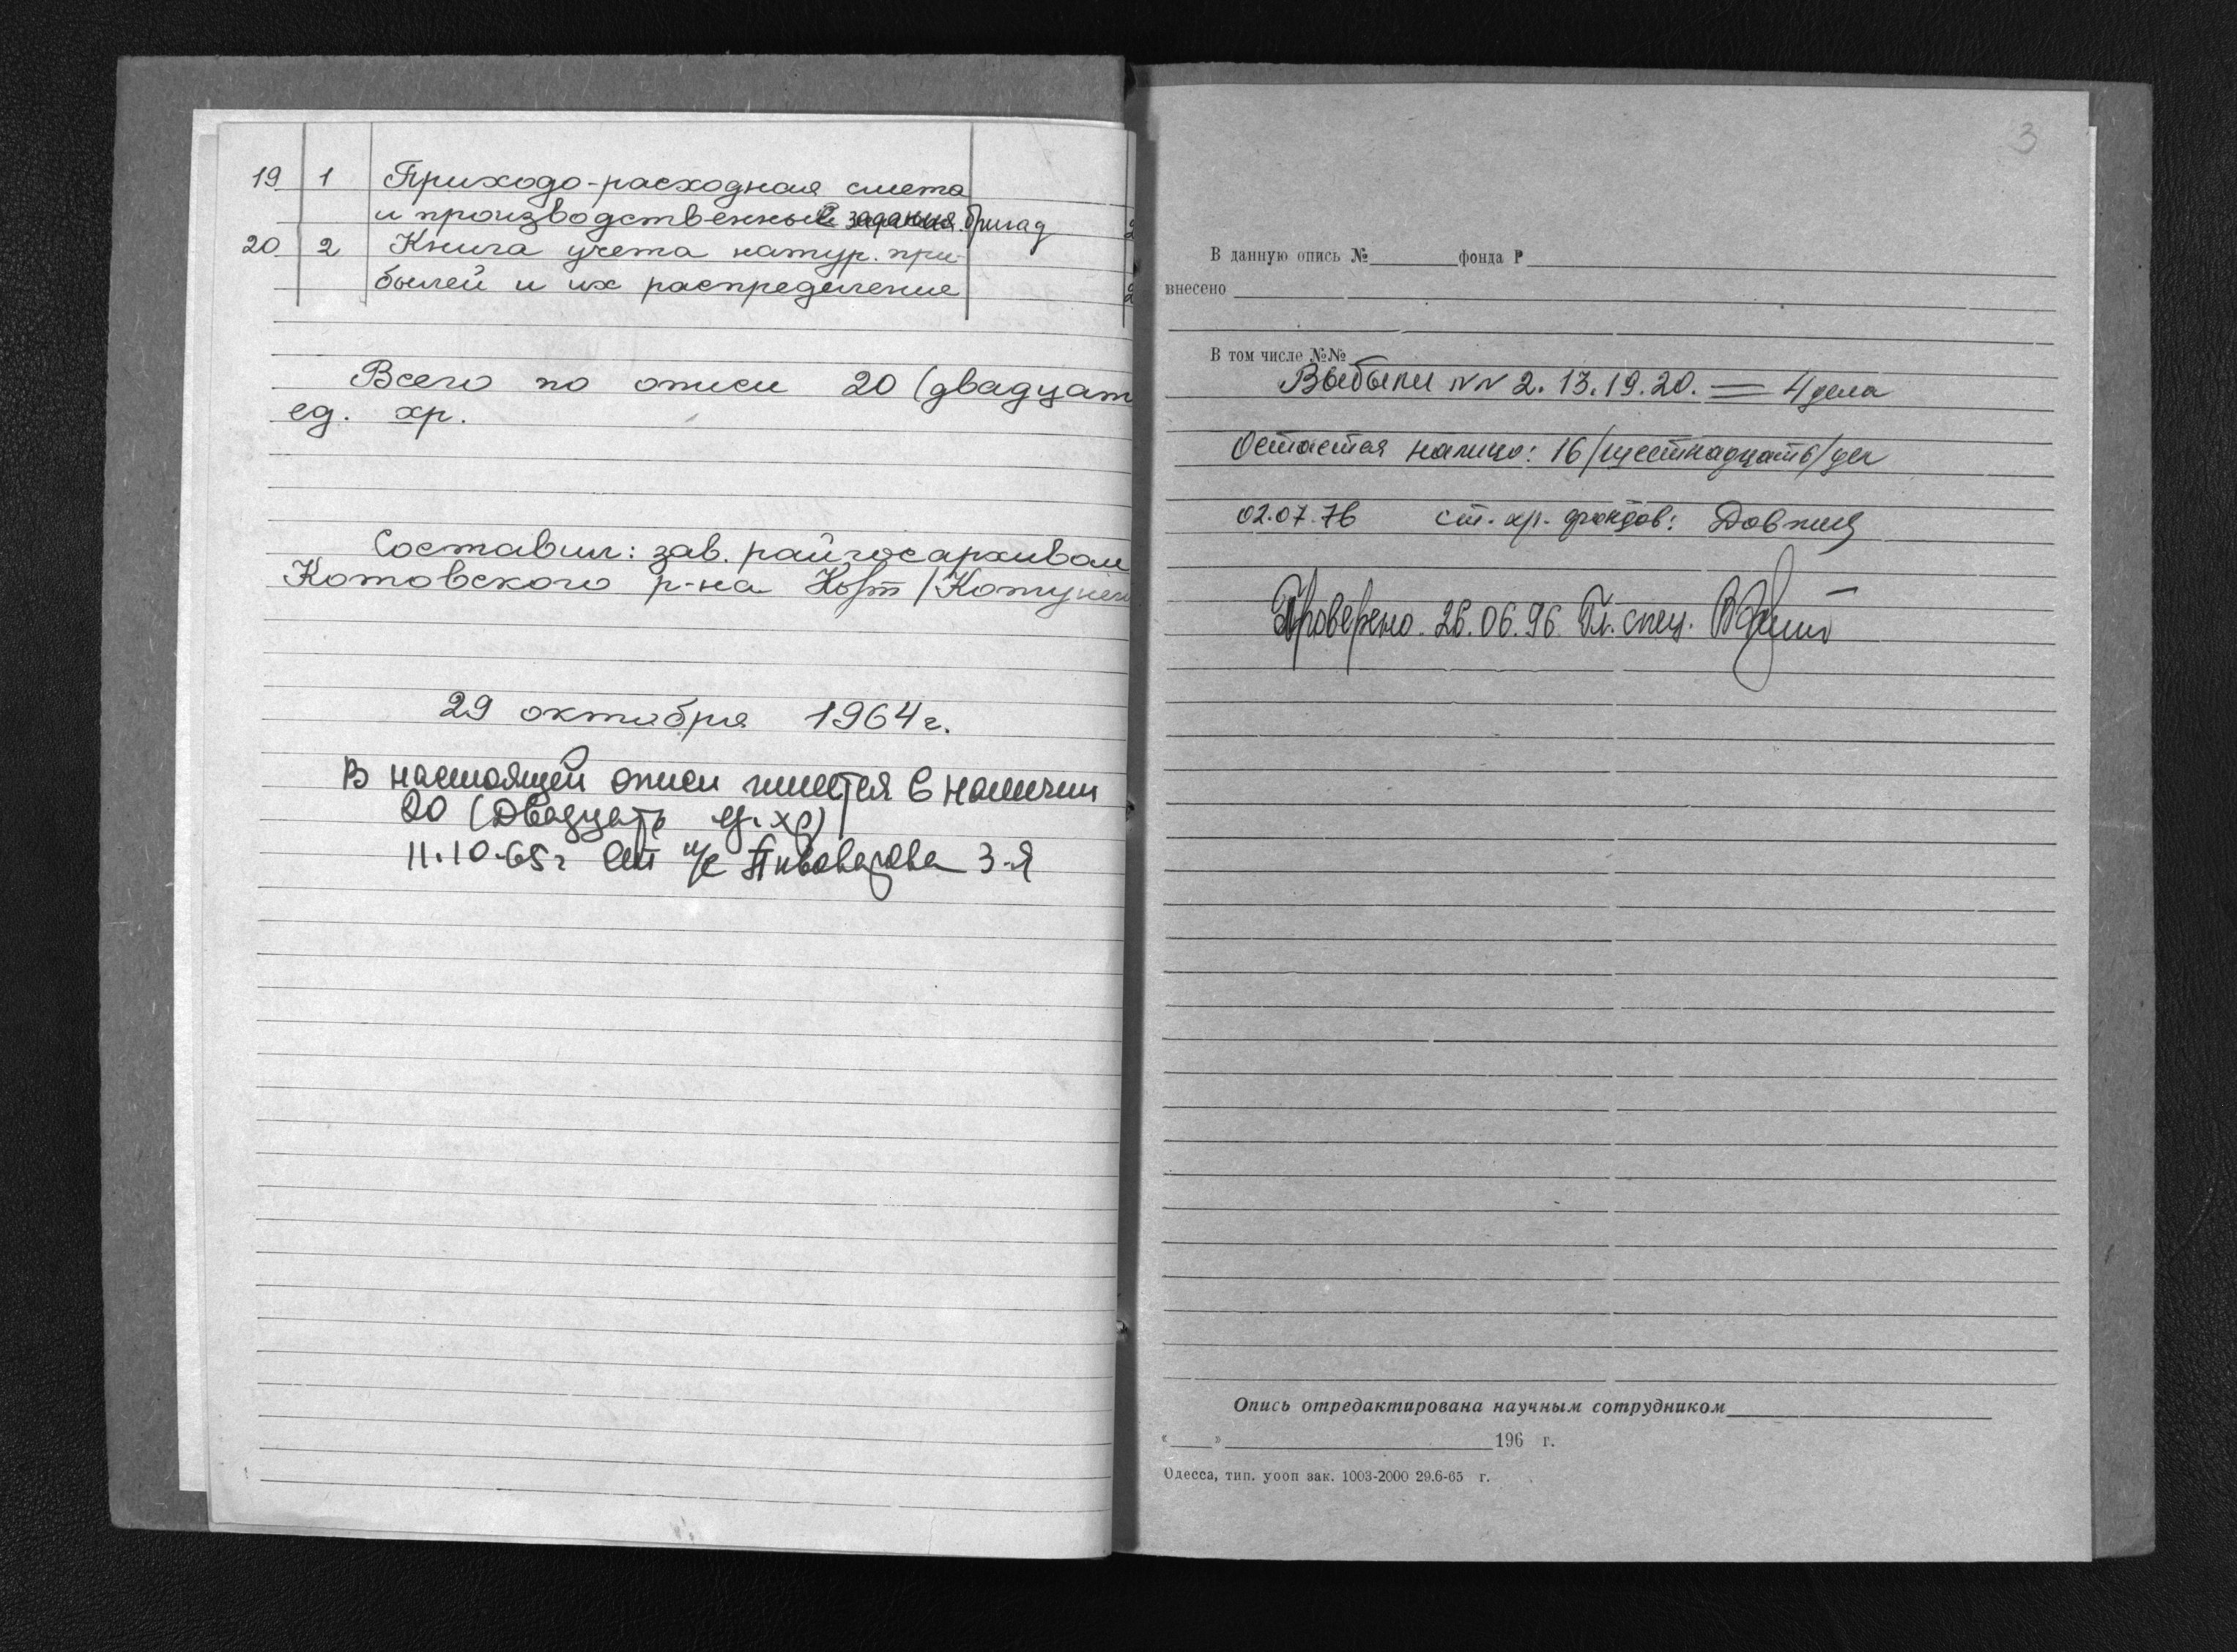 19 1 Приходо-расходная смета
и производственные задания бригад
20 2 Книга учета натур. при-
былей и их распределение
Всего по описи 20 (двадцат
ед. хр.
Составил: зав. райгосархивом
Котовского р-на
29 октября 1964 г.
В настоящей описи имеется в наличии
20 (Двадцать ед. хр)
11.10.65 г Ст н/с Пивоварова З-Я
3
В данную опись № фонда Р
внесено
В том числе №№
Выбыли NN 2. 13. 19. 20. = 4 дела
Остается налицо: 16 /шестнадцать/ дел
02.07.76 ст. хр. фондов:
Проверено. 26.06.96 Гл. спец.
Опись отредактирована научным сотрудником
« » 196 г.
Одесса, тип. уооп зак. 1003-2000 29.6-65 г.